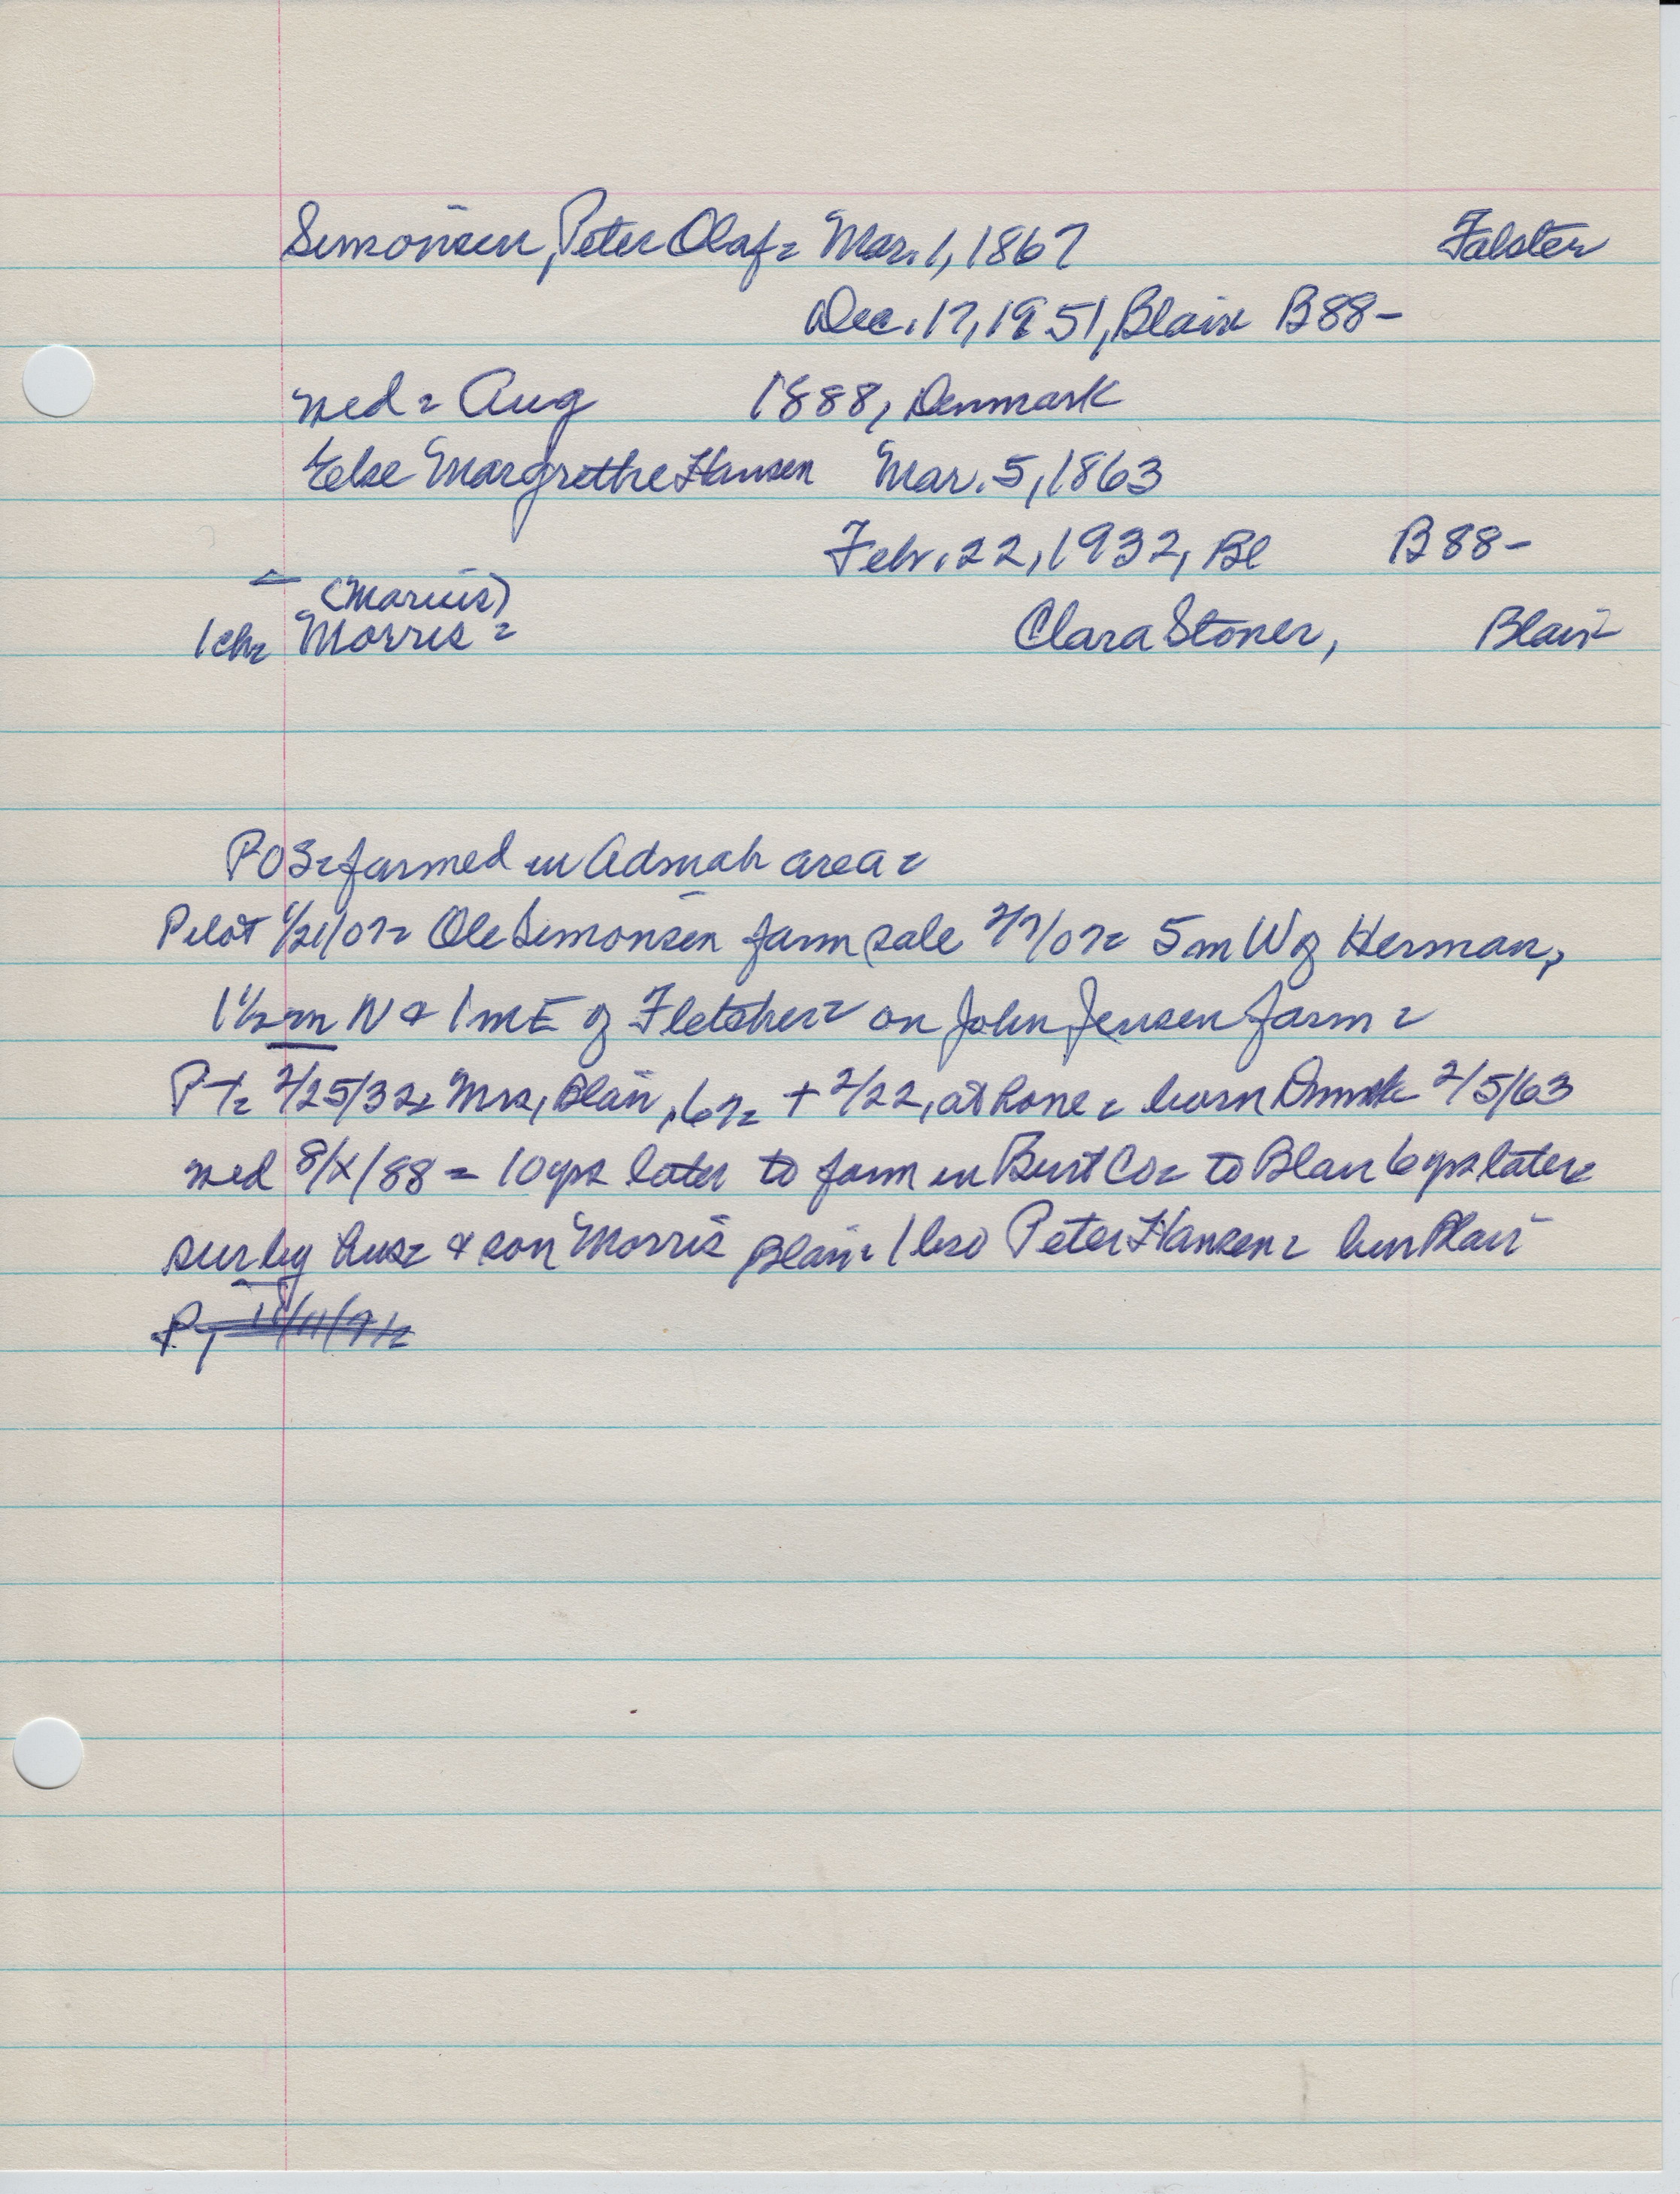 Simonsen, Peter Olaf= Mar. 1, 1867 Falster
Dec. 17, 1951, Blair B88-
med= Aug 1888, Denmark
Else Margrethe Hansen Mar. 5, 1863
Febr. 22, 1932, Bl B88-
(Marius)
1 ch= Morris= Clara Stoner, Blair
POS= farmed in Admah area=
Pilot 1/21/07= Ole Simonsen farm sale 2/7/07= 5 m W of Herman,
1 1/2 m N & 1 m E of Fletcher= on John Jensen farm=
PT= 2/25/32= Mrs, Blair, 67= + 2/22, at home= born Dnmk 2/5/63
med 8/X/88= 10 yrs later to farm in Burt Co= to Blair 6 yrs later=
sur by hus= & son Morris Blair= 1 bro Peter Hansen= bur Blair